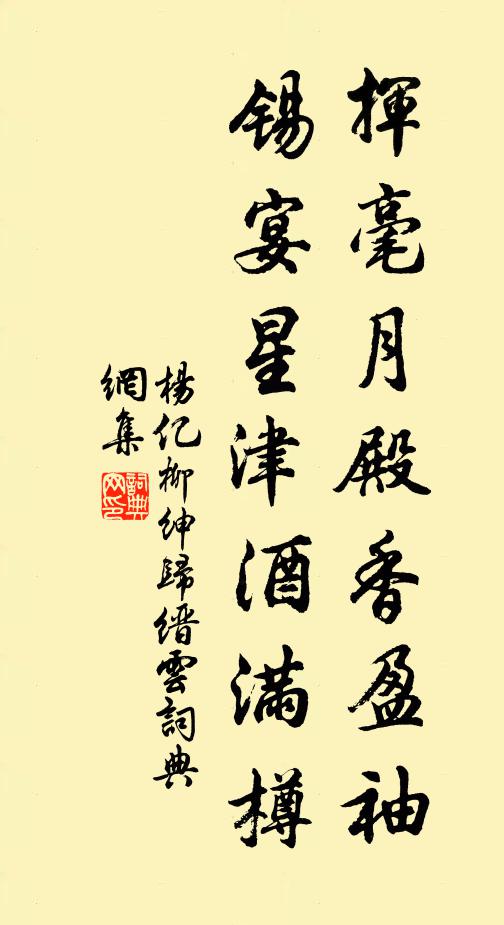 揮毫月殿香盈袖
錫宴星津酒滿樽
楊億柳紳歸縉雲詞典
網集
詞典
网印